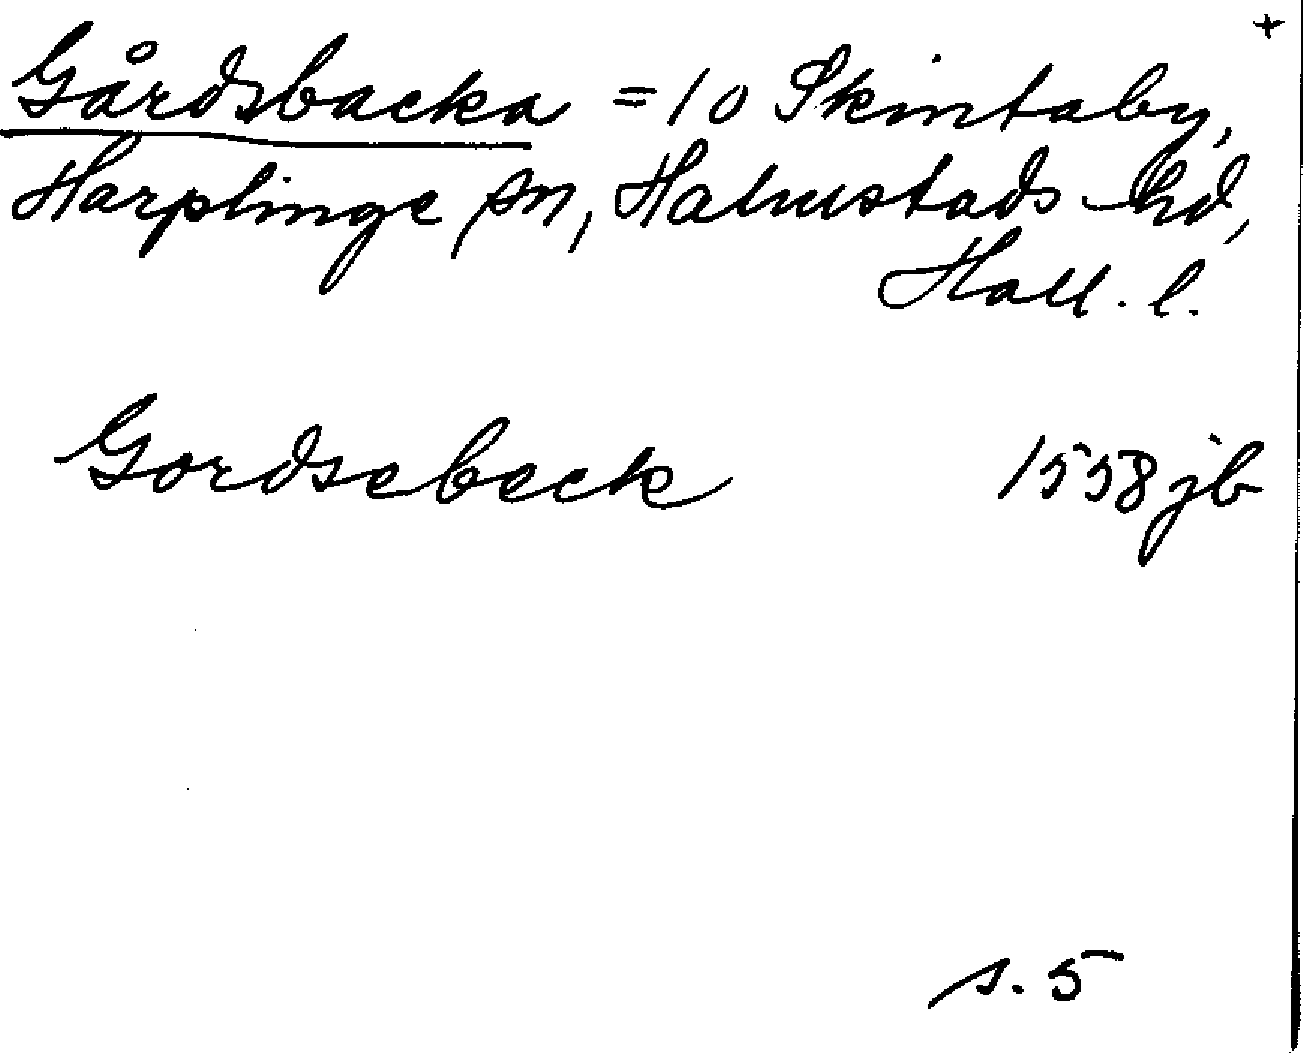 +
Gårdsbacka = 10 Skintaby,
Harplinge sn, Halmstads hd,
Hall. l.
Gordsebeck 1558 jb
s. 5